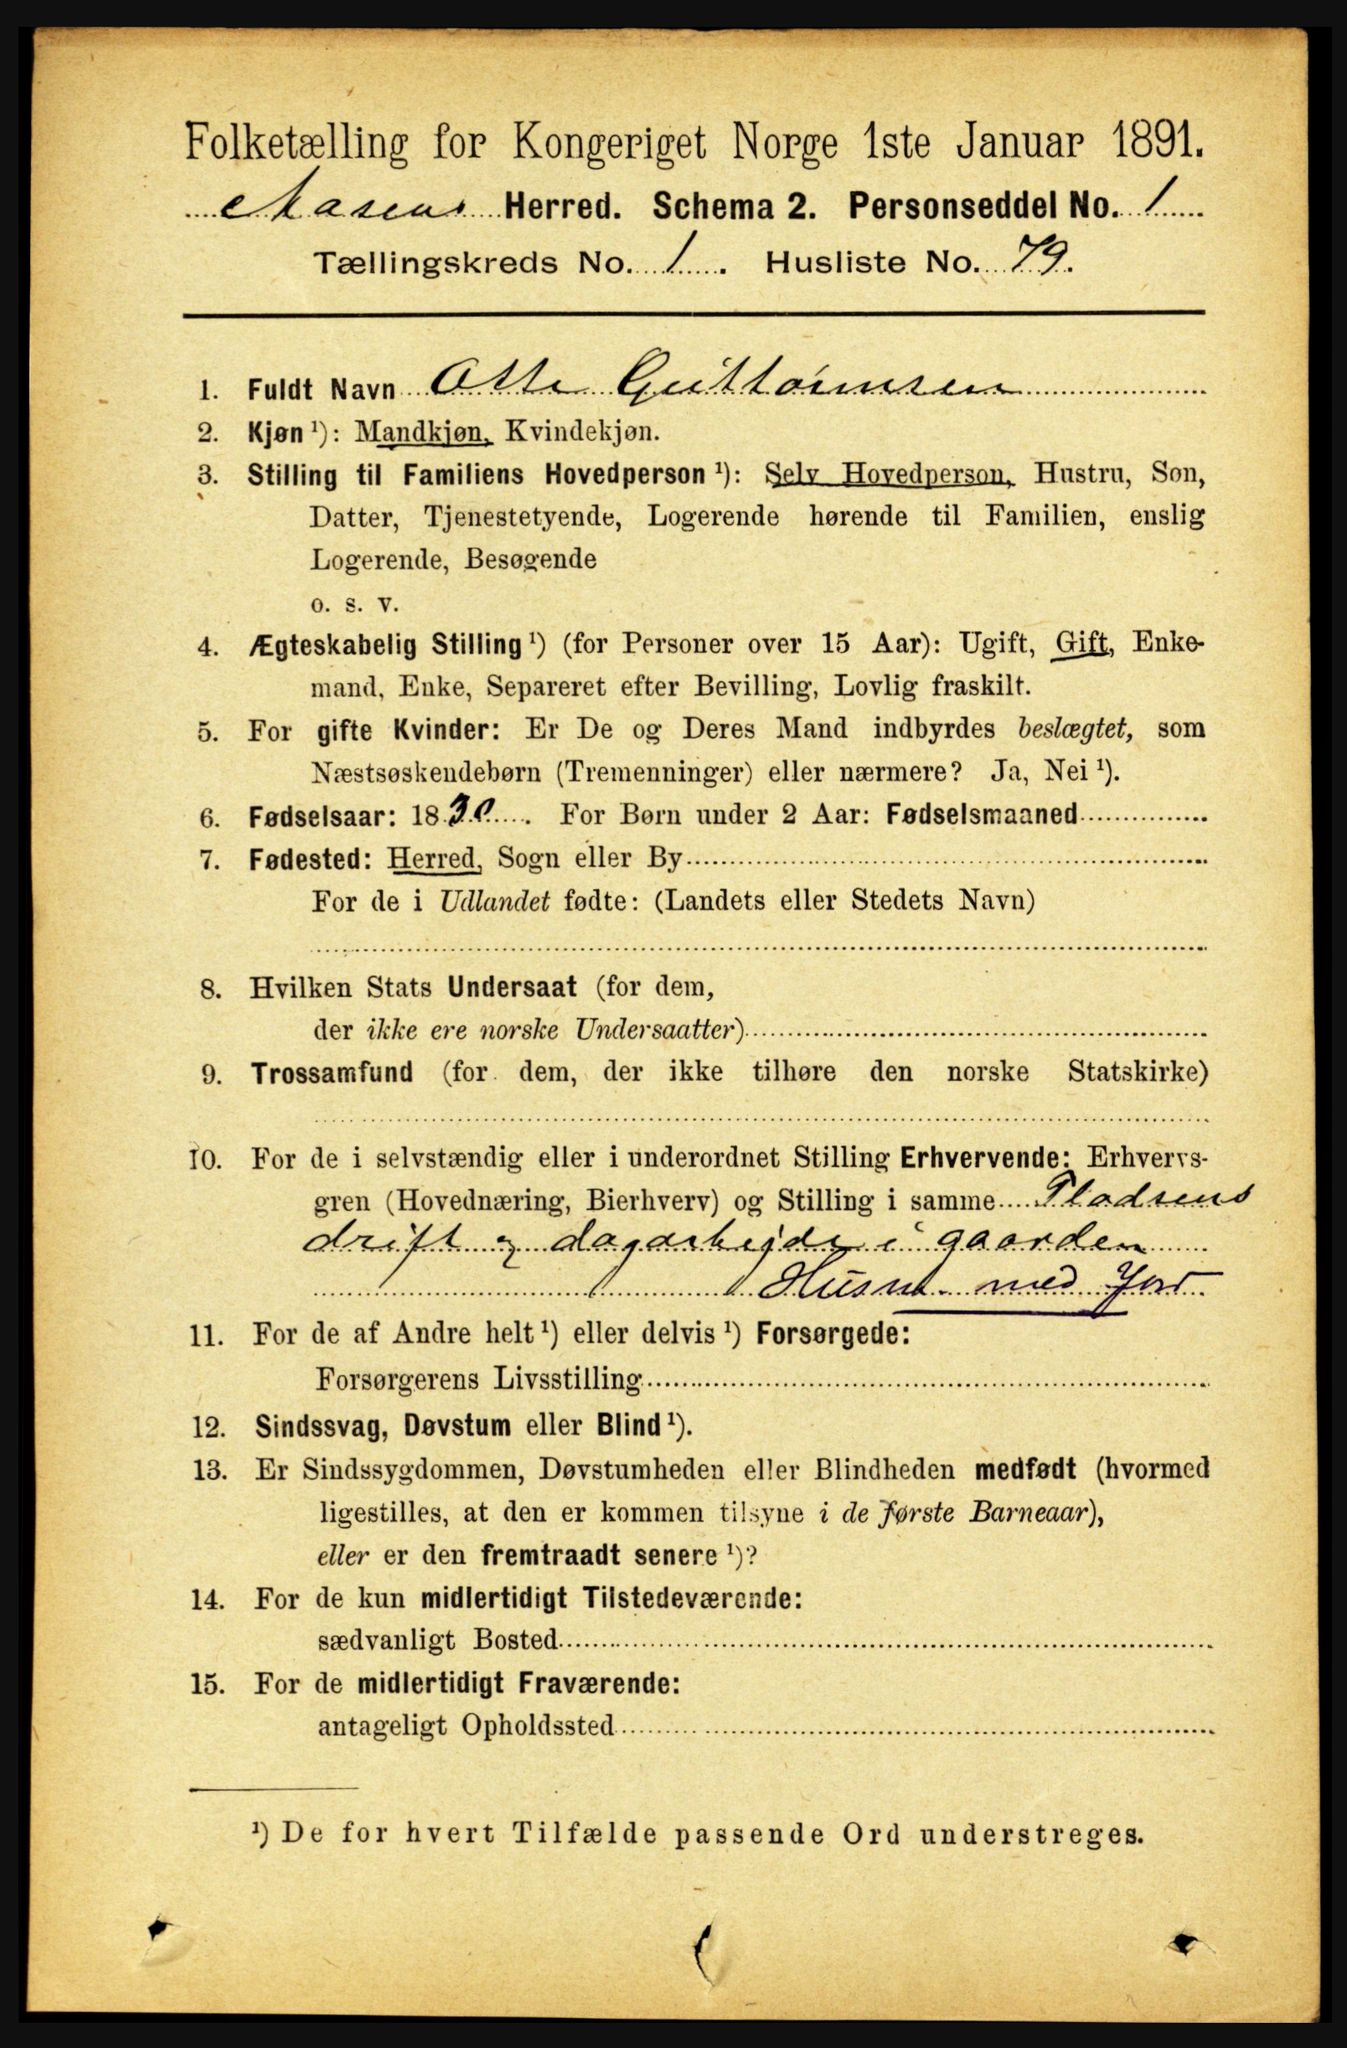 Folketælling for Kongeriget Norge 1ste Januar 1891.
Aasens Herred. Schema 2. Personseddel No. 1
Tællingskreds No. 1. Husliste No. 79.
1. Fuldt Navn Otte Guttormsen
2. Kjøn ¹): Mandkjøn, Kvindekjøn.
3. Stilling til Familiens Hovedperson ¹): Selv Hovedperson, Hustru, Søn,
Datter, Tjenestetyende, Logerende hørende til Familien, enslig
Logerende, Besøgende
o. s. v.
4. Ægteskabelig Stilling ¹) (for Personer over 15 Aar): Ugift, Gift, Enke-
mand, Enke, Separeret efter Bevilling, Lovlig fraskilt.
5. For gifte Kvinder: Er De og Deres Mand indbyrdes beslægtet, som
Næstsøskendebørn (Tremenninger) eller nærmere? Ja, Nei ¹).
6. Fødselsaar: 1830. For Børn under 2 Aar: Fødselsmaaned
7. Fødested: Herred, Sogn eller By
For de i Udlandet fødte: (Landets eller Stedets Navn)
8. Hvilken Stats Undersaat (for dem,
der ikke ere norske Undersaatter)
9. Trossamfund (for dem, der ikke tilhøre den norske Statskirke)
10. For de i selvstændig eller i underordnet Stilling Erhvervende: Erhvervs-
gren (Hovednæring, Bierhverv) og Stilling i samme Pladsens
drift og dagarbejde i gaarden
Husm. med Jord
11. For de af Andre helt ¹) eller delvis ¹) Forsørgede:
Forsørgerens Livsstilling
12. Sindssvag, Døvstum eller Blind ¹).
13. Er Sindssygdommen, Døvstumheden eller Blindheden medfødt (hvormed
ligestilles, at den er kommen tilsyne i de første Barneaar),
eller er den fremtraadt senere ¹)?
14. For de kun midlertidigt Tilstedeværende:
sædvanligt Bosted
15. For de midlertidigt Fraværende:
antageligt Opholdssted
¹) De for hvert Tilfælde passende Ord understreges.